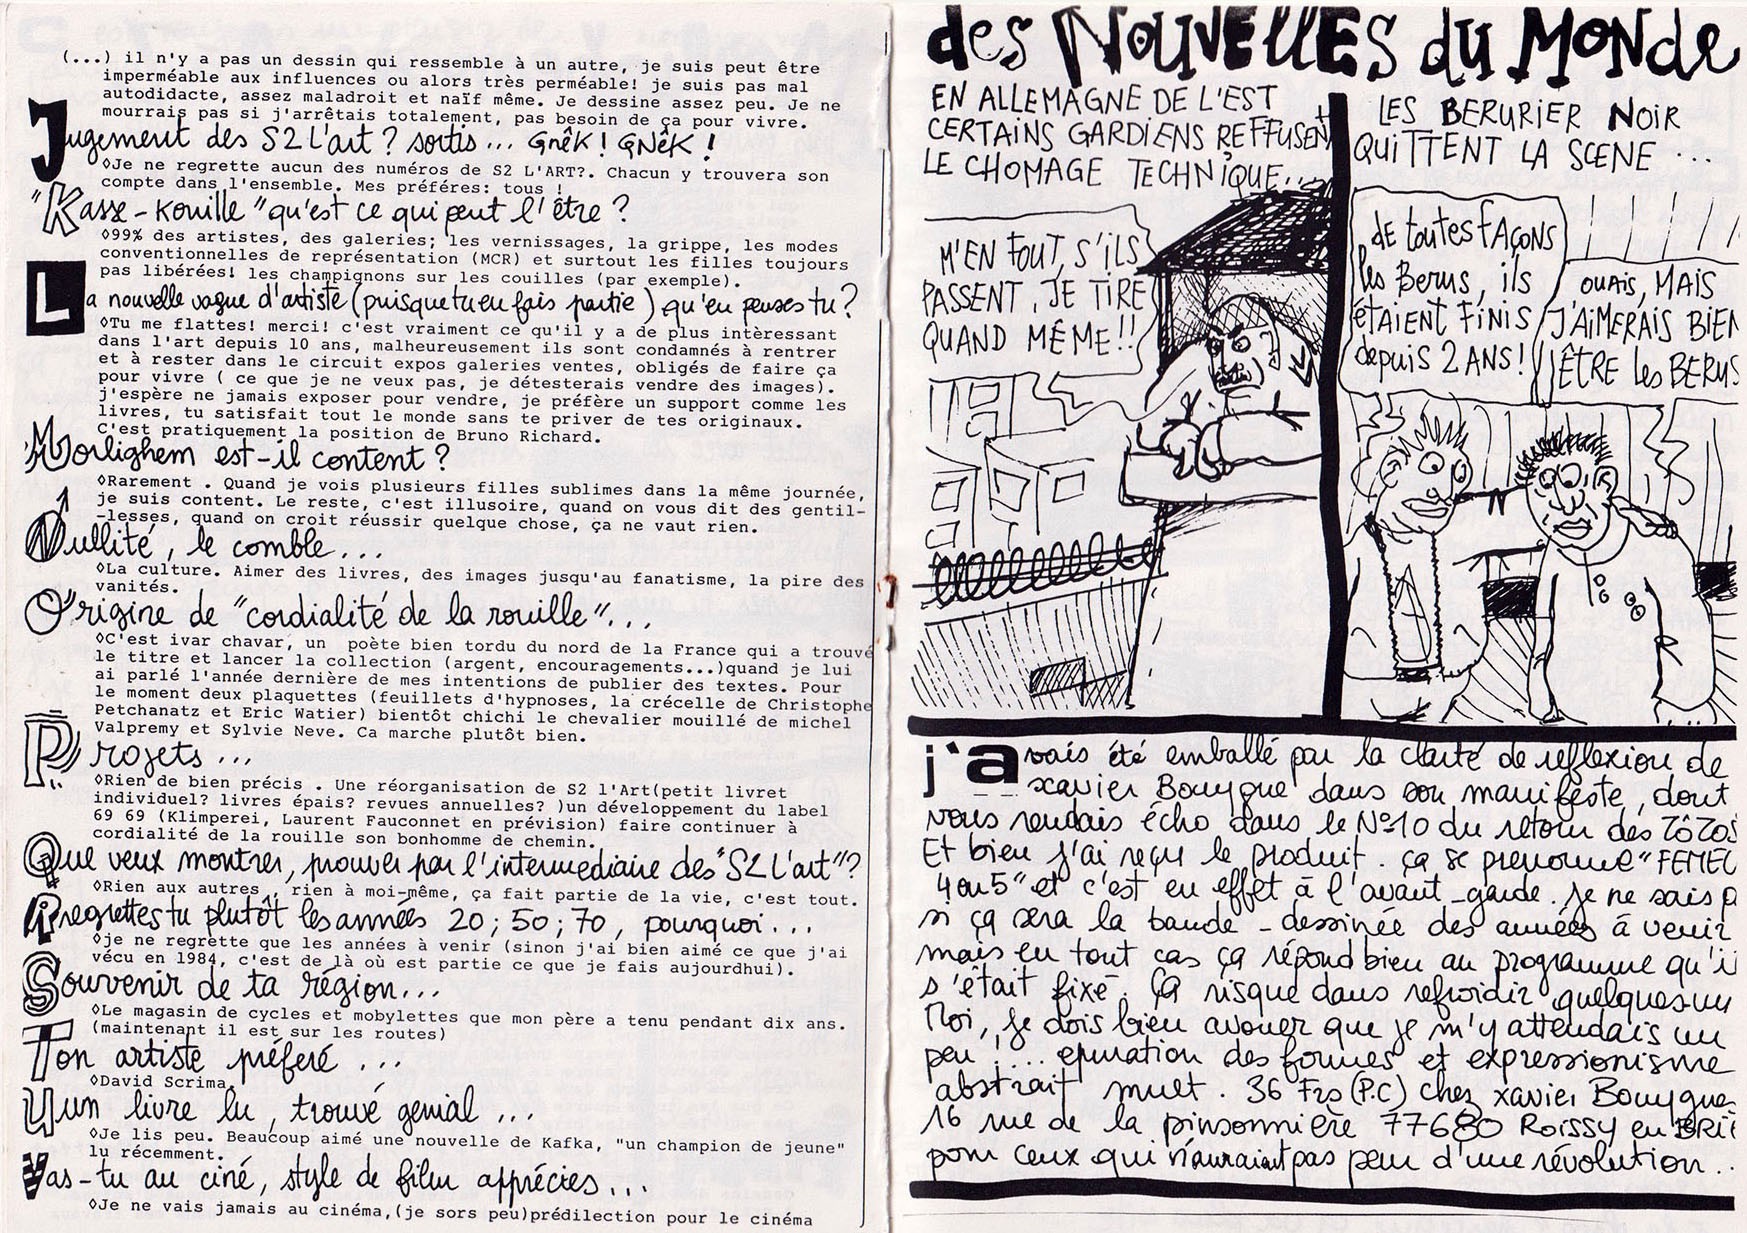 (...) il n'y a pas un dessin qui ressemble à un autre, je suis peut être
imperméable aux influences ou alors très perméable! je suis pas mal
autodidacte, assez maladroit et naïf même. Je dessine assez peu. Je ne
mourrais pas si j'arrêtais totalement, pas besoin de ça pour vivre.
Jugement des S2 L'art ? sortis ... GnêK ! GNêK !
◊Je ne regrette aucun des numéros de S2 L'ART?. Chacun y trouvera son
compte dans l'ensemble. Mes préférés: tous !
"Kasse - Kouille" qu'est ce qui peut l'être ?
◊99% des artistes, des galeries; les vernissages, la grippe, les modes
conventionelles de représentation (MCR) et surtout les filles toujours
pas libérées! les champignons sur les couilles (par exemple).
La nouvelle vague d'artiste (puisque tu en fais partie) qu'en penses tu ?
◊Tu me flattes! merci! c'est vraiment ce qu'il y a de plus intèressant
dans l'art depuis 10 ans, malheureusement ils sont condamnés à rentrer
et à rester dans le circuit expos galeries ventes, obligés de faire ça
pour vivre ( ce que je ne veux pas, je détesterais vendre des images).
j'espère ne jamais exposer pour vendre, je préfère un support comme les
livres, tu satisfait tout le monde sans te priver de tes originaux.
C'est pratiquement la position de Bruno Richard.
Morlighem est-il content ?
◊Rarement . Quand je vois plusieurs filles sublimes dans la même journée,
je suis content. Le reste, c'est illusoire, quand on vous dit des gentil-
-lesses, quand on croit réussir quelque chose, ça ne vaut rien.
Nullité, le comble...
◊La culture. Aimer des livres, des images jusqu'au fanatisme, la pire des
vanités.
Origine de "cordialité de la rouille"...
◊C'est ivar chavar, un poète bien tordu du nord de la France qui a trouvé
le titre et lancer la collection (argent, encouragements...)quand je lui
ai parlé l'année dernière de mes intentions de publier des textes. Pour
le moment deux plaquettes (feuillets d'hypnoses, la crécelle de Christophe
Petchanatz et Eric Watier) bientôt chichi le chevalier mouillé de michel
Valpremy et Sylvie Neve. Ca marche plutôt bien.
Projets ...
◊Rien de bien précis . Une réorganisation de S2 l'Art(petit livret
individuel? livres épais? revues annuelles? )un développement du label
69 69 (Klimperei, Laurent Fauconnet en prévision) faire continuer à
cordialité de la rouille son bonhomme de chemin.
Que veux montrer, prouver par l'intermediaire des "S2 L'art" ?
◊Rien aux autres , rien à moi-même, ça fait partie de la vie, c'est tout.
Regrettes tu plutôt les années 20 ; 50 ; 70 , pourquoi ...
◊je ne regrette que les années à venir (sinon j'ai bien aimé ce que j'ai
vécu en 1984, c'est de là où est partie ce que je fais aujourdhui).
Souvenir de ta région...
◊Le magasin de cycles et mobylettes que mon père a tenu pendant dix ans.
(maintenant il est sur les routes)
Ton artiste préferé ...
◊David Scrima.
Uun livre lu, trouvé genial ...
◊Je lis peu. Beaucoup aimé une nouvelle de Kafka, "un champion de jeune"
lu récemment.
Vas-tu au ciné, style de film apprécies...
◊Je ne vais jamais au cinéma,(je sors peu)prédilection pour le cinéma
des NOUVELLES du MONde
EN ALLEMAGNE DE L'EST
CERTAINS GARDIENS REFFUSENT
LE CHOMAGE TECHNIQUE...
M'EN FOUT, S'ILS
PASSENT, JE TIRE
QUAND MÊME !!
LES BERURIER NOIR
QUITTENT LA SCENE ...
DE toutes FAÇONS
les Berus, ils
étAIENT FINIS
depuis 2 ANS !
OUAIS, MAIS
J'AIMERAIS BIEN
ÊTRE les BERUS
N
j'avais été emballé par la clarté de reflexion de
xavier Bouygue dans son manifeste, dont
vous rendais écho dans le N°10 du retour des ZôZOS
Et bien j'ai reçu le produit. ça se prenomme "FEMEL
4 ou 5" et c'est en effet à l'avant-garde. je ne sais p
si ça sera la bande-dessinée des années à venir
mais en tout cas ça répond bien au programme qu'il
s'était fixé. ça risque dans refroidir quelques-un
Moi, je dois bien avouer que je m'y attendais un
peu ;... epuration des formes et expressionisme
abstrait mult. 36 Frs (P.C) chez xavier Bouygues
16 rue de la pinsonnière 77680 Roissy en BRIE
pour ceux qui n'auraient pas peur d'une révolution..